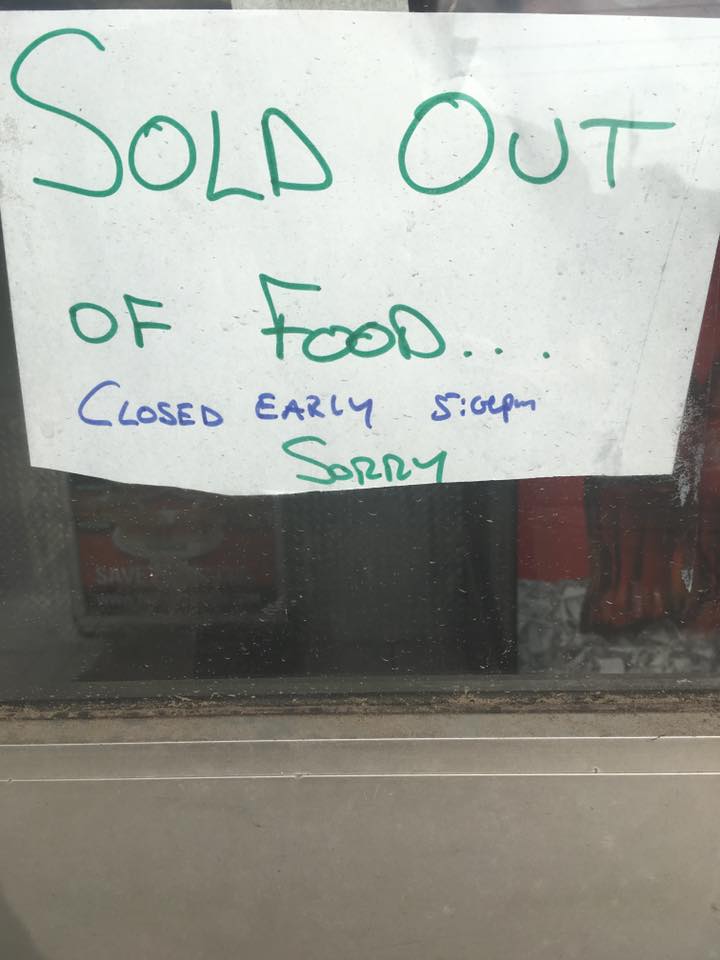 SOLD OUT
OF FOOD....
CLOSED EARLY 5:00pm
SORRY
SAVE